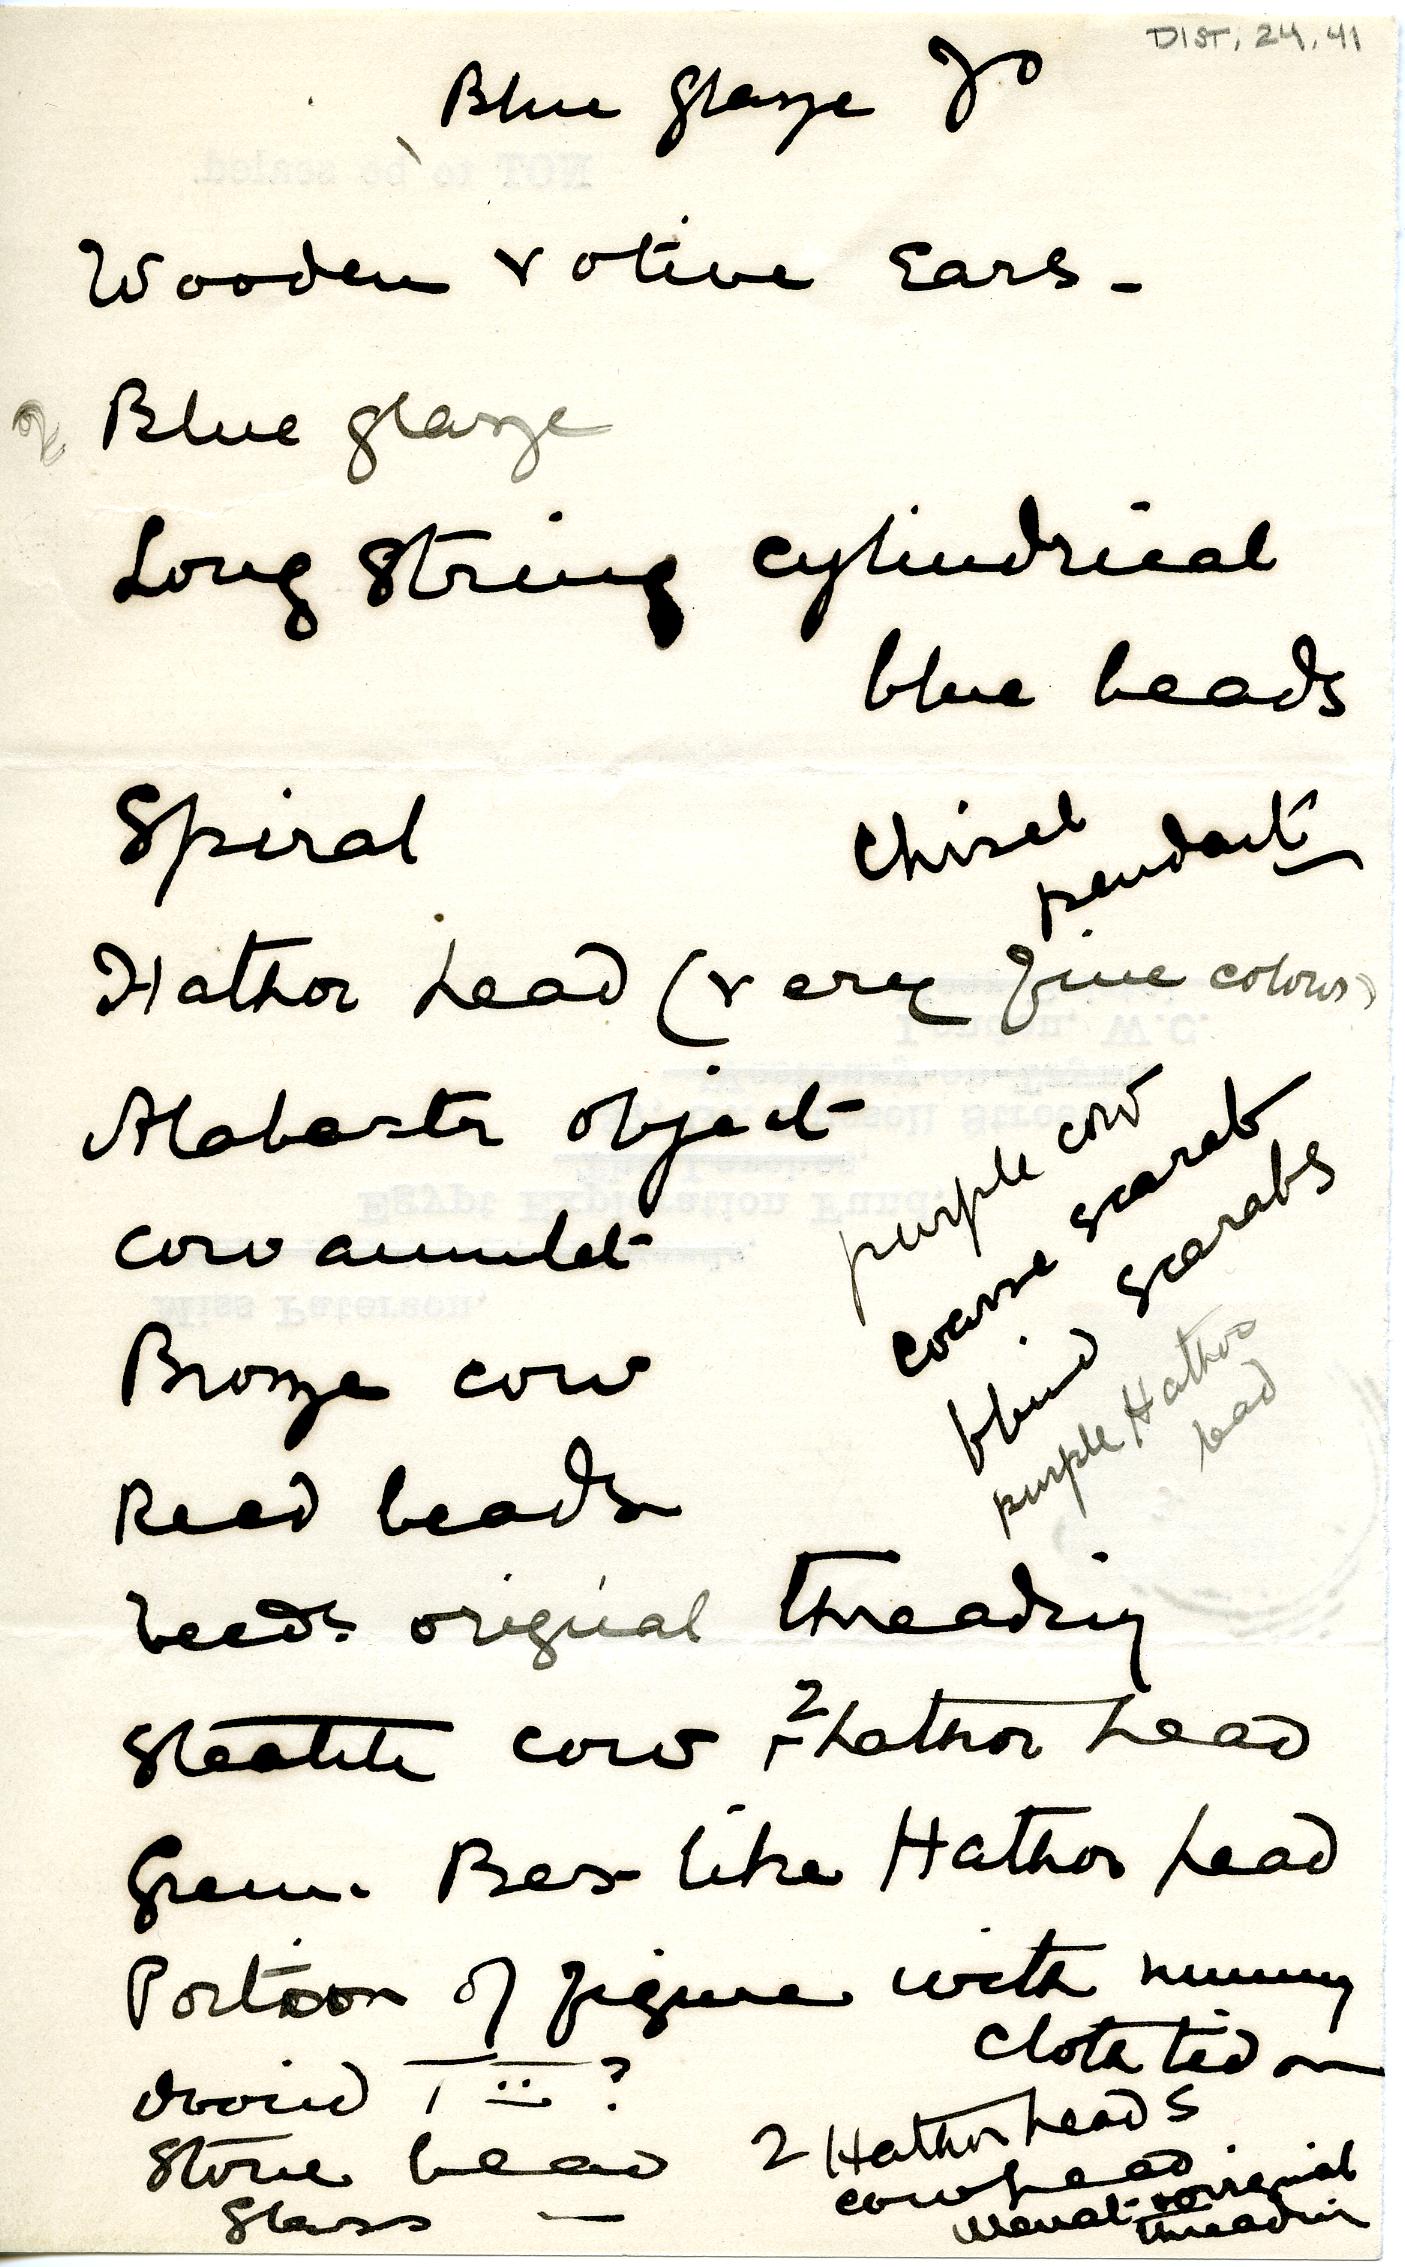 DIST. 24.41
Blue glaze
Wooden votive Ears -
Blue glaze
Long string cylindrical
blue beads
Spiral
Chisel
pendant
Hathor head (very fine colour)
Alabaster object
purple cow
coarse scarab
cow amulet
blind scarabs
Bronze cow
purple Hathor
head
Reed beads
beads original threading
Steatite cow + 2 hathor head
Green Bes like Hathor head
Portion of figure with mummy
cloth tied on
ovoid ?
2 Hathor heads
Stone bead
cow head
Glass —
menat original
threading
NOT to be sealed.
Miss Paterson.
Egypt Exploration Fund.
London. W.C.